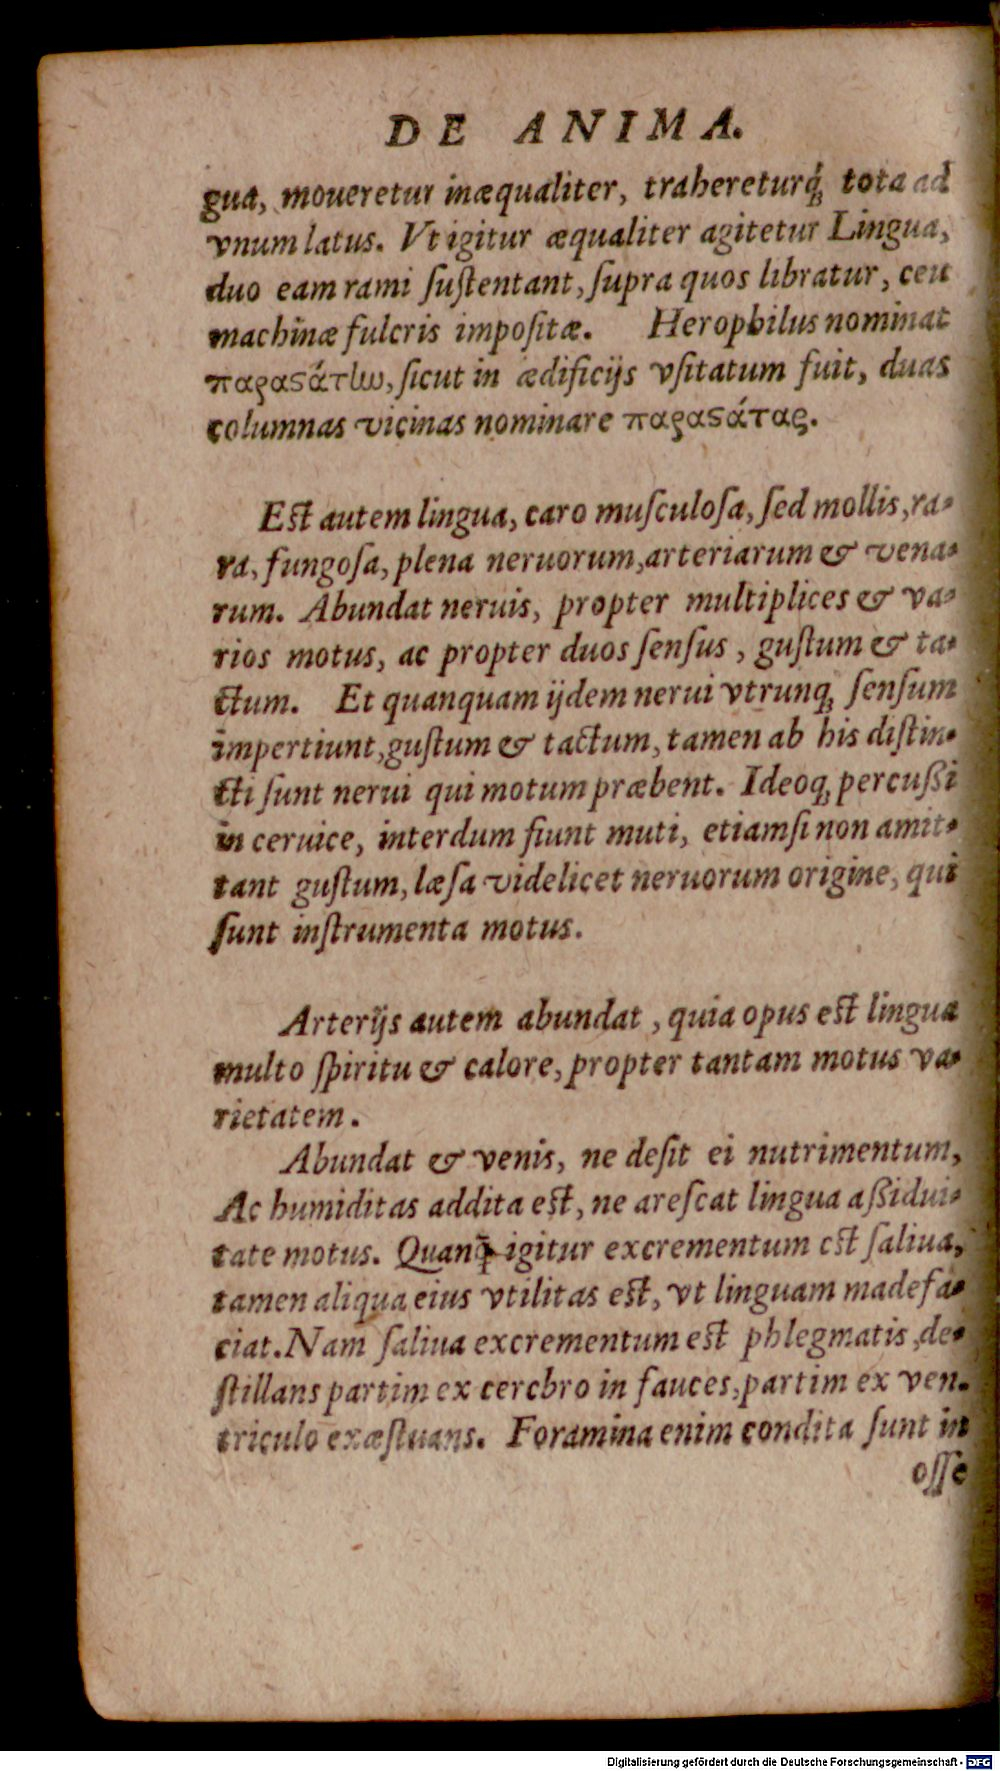 DE ANIMA.
gua, moueretur inæqualiter, trahereturq́; tota ad
vnum latus. Vt igitur æqualiter agitetur Lingua,
duo eam rami ſuſtentant, ſupra quos libratur, ceu
machinæ fulcris impoſitæ. Herophilus nominat
παραϛάτlω, ſicut in ædificijs vſitatum fuit, duas
columnas vicinas nominare παραϛάτας.
Eſt autem lingua, caro muſculoſa, ſed mollis, ra-
ra, fungoſa, plena neruorum, arteriarum & vena-
rum. Abundat neruis, propter multiplices & va-
rios motus, ac propter duos ſenſus, guſtum & ta-
ctum. Et quanquam ijdem nerui vtrunq; ſenſum
impertiunt, guſtum & tactum, tamen ab his diſtin-
cti ſunt nerui qui motum præbent. Ideoq; percußi
in ceruice, interdum fiunt muti, etiamſi non amit-
tant guſtum, læſa videlicet neruorum origine, qui
ſunt inſtrumenta motus.
Arterijs autem abundat, quia opus eſt lingua
multo ſpiritu & calore, propter tantam motus va-
rietatem.
Abundat & venis, ne deſit ei nutrimentum,
Ac humiditas addita eſt, ne areſcat lingua aßidui-
tate motus. Quanq̄ igitur excrementum eſt ſaliua,
tamen aliqua eius vtilitas eſt, vt linguam madefa-
ciat. Nam ſaliua excrementum eſt phlegmatis, de-
ſtillans partim ex cerebro in fauces, partim ex ven-
triculo exæſtuans. Foramina enim condita ſunt in
oſſe
Digitalisierung gefördert durch die Deutsche Forschungsgemeinschaft - DFG